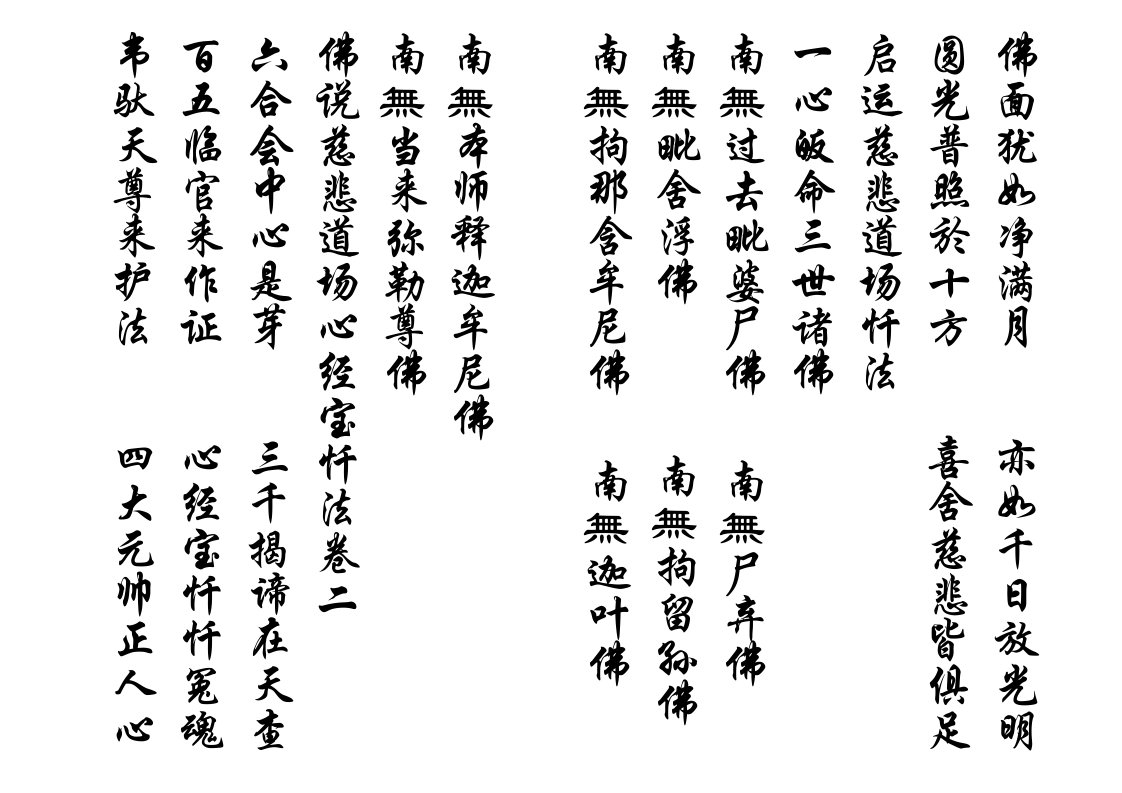 佛面犹如净满月 亦如千日放光明
圆光普照於十方 喜舍慈悲皆俱足
启运慈悲道场忏法
一心皈命三世诸佛
南無过去毗婆尸佛 南無尸弃佛
南無毗舍浮佛 南無拘留孙佛
南無拘那含牟尼佛 南無迦叶佛
南無本师释迦牟尼佛
南無当来弥勒尊佛
佛说慈悲道场心经宝忏法卷二
六合会中心是芽 三千揭谛在天查
百五临官来作证 心经宝忏忏冤魂
韦驮天尊来护法 四大元帅正人心